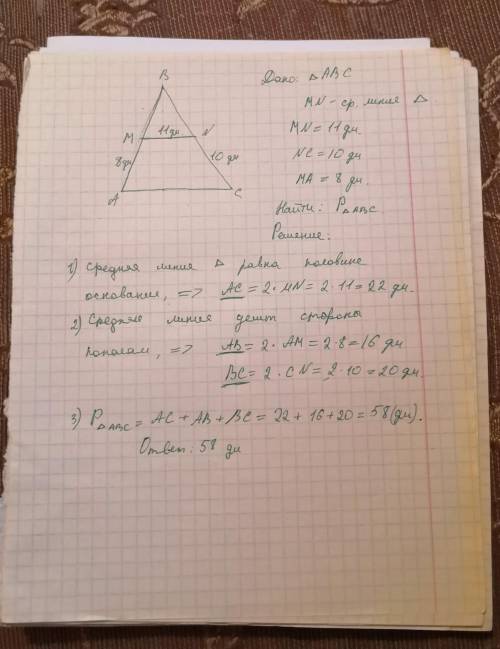 B
Дано: △ABC
MN - ср. линия △
M 11 дм N
MN = 11 дм.
8 дм 10 дм
NC = 10 дм
MA = 8 дм.
A C
Найти: P△ABC.
Решение:
1) Средняя линия △ равна половине
основания, => AC = 2·MN = 2·11 = 22 дм.
2) Средняя линия делит стороны
пополам, => AB = 2·AM = 2·8 = 16 дм
BC = 2·CN = 2·10 = 20 дм.
3) P△ABC = AC + AB + BC = 22 + 16 + 20 = 58 (дм).
Ответ: 58 дм